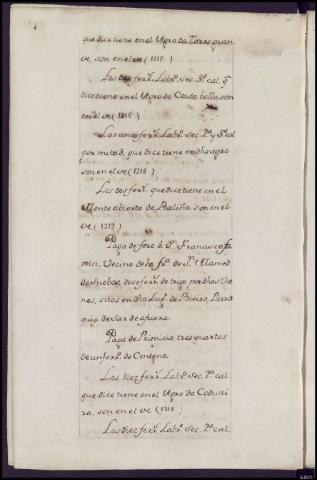 que dice tiene en el Agro da Torre gran
ve, son en el ve (1217)
Los dos ferr.s Labr.o sec. 3.a cal. q.e
dice tiene en el Agro do Couto bello, son
en el ve (1218)
Los cinco ferr.s Labr.o sec. 2.a y 3.a cal
por mitad, que dice tiene en dho agro
son en el ve (1218)
Los dos ferr.s que dice tiene en el
Monte abierto de Baliño. son en el
ve (1219)
Paga de foro á D.n Francisco
Vecino de la fra. de S.n Mamed
de doce ferr.s de trigo por dhos Vie
nes, sitos en dho Lug.r de Bieiro, Parro
quia de Sar de afuera.
Paga de Primicia, tres quartos
de un ferr.o de Centeno.
Los diez ferr.s Labr.o sec. 2.a cal
que dice tiene en el Agro da Codesei
ra, son en el ve (1218
Los diez ferr.s Labr.o sec. 2.a cal.